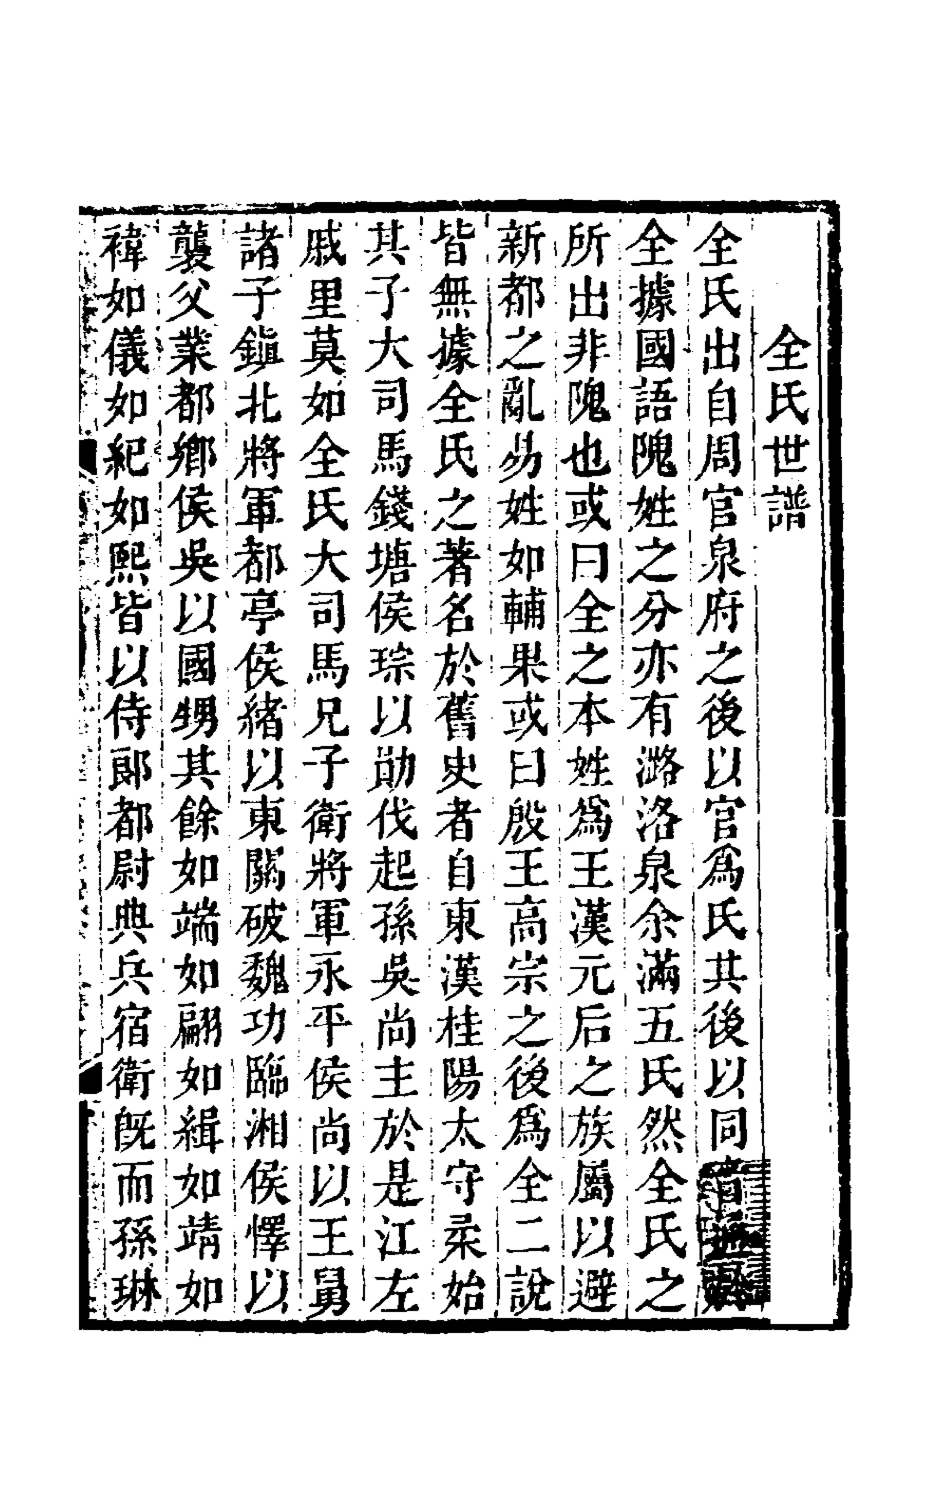 全氏世譜
全氏出自周官泉府之後以官爲氏其後以同音通於
全據國語隗姓之分亦有潞洛泉余滿五氏然全氏之
所出非隗也或曰全之本姓爲王漢元后之族屬以避
新都之亂易姓如輔果或曰殷王高宗之後爲全二說
皆無據全氏之著名於舊史者自東漢桂陽太守柔始
其子大司馬錢塘侯琮以勛伐起孫吳尚主於是江左
戚里莫如全氏大司馬兄子衛將軍永平侯尚以王舅
諸子鎮北將軍都亭侯緒以東關破魏功臨湘侯懌以
襲父業都鄉侯吳以國甥其餘如端如翩如緝如靖如
禕如儀如紀如熙皆以侍郞都尉典兵宿衛旣而孫琳